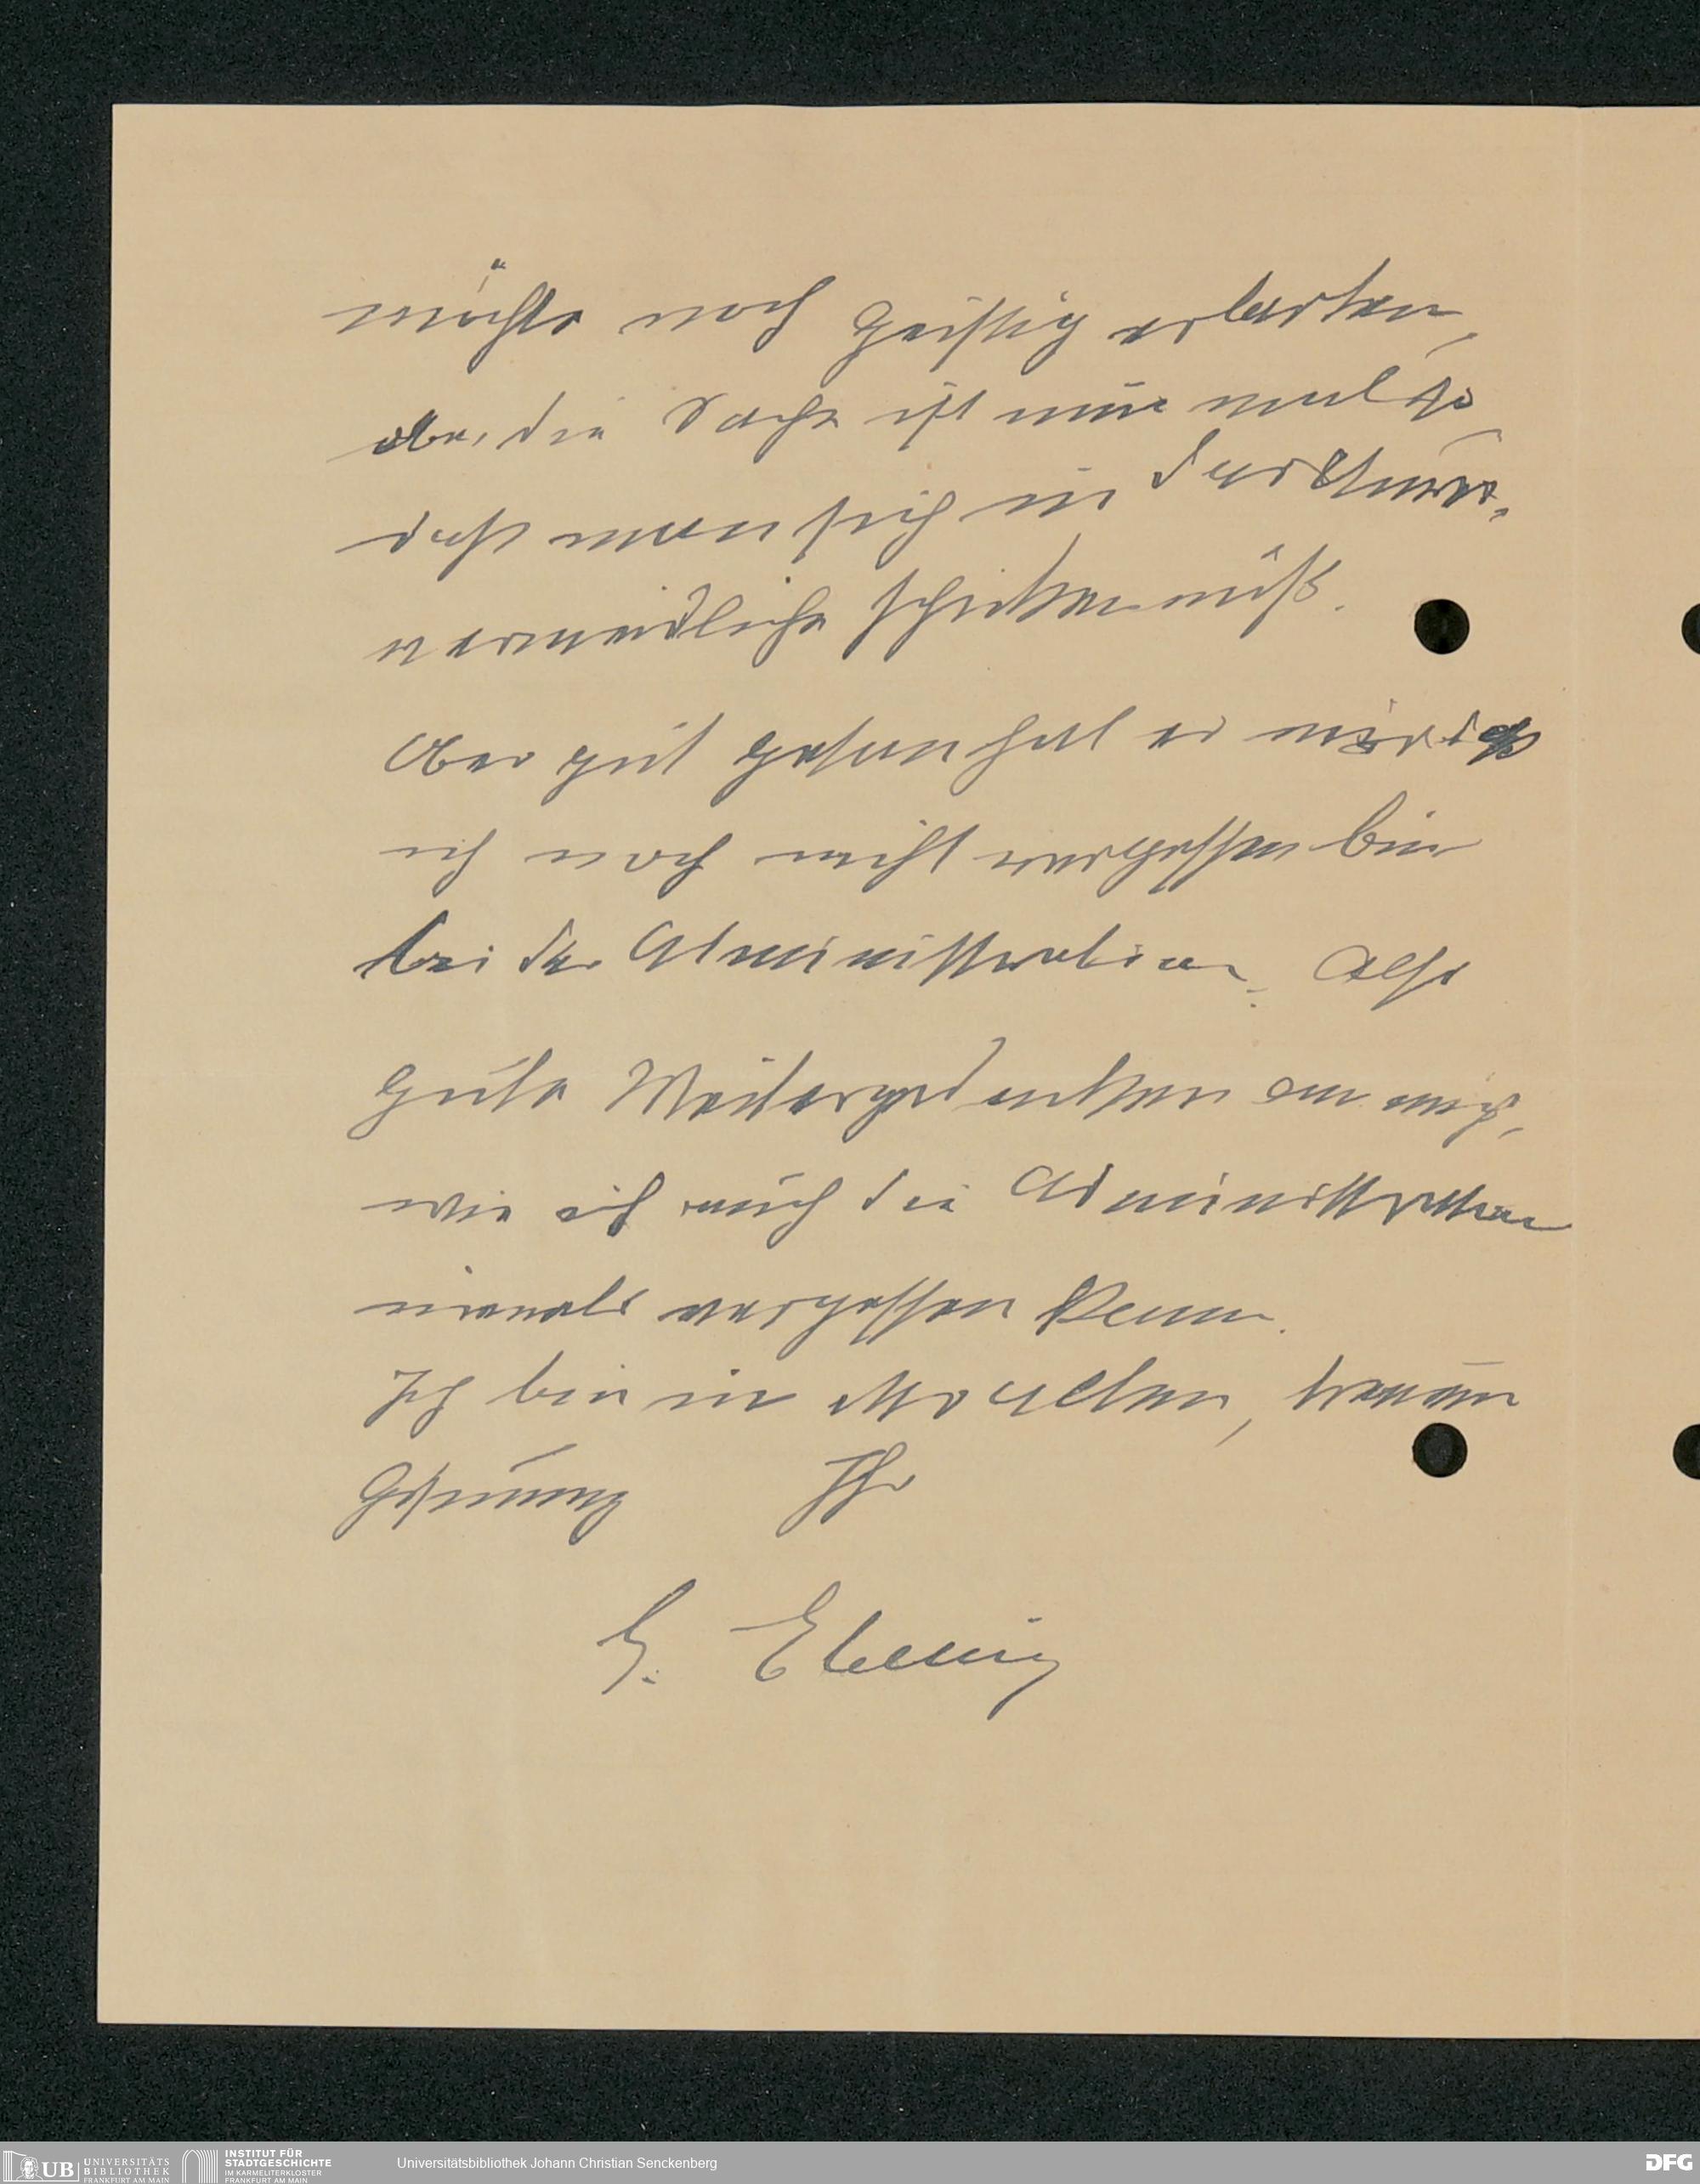 möchte noch geistig arbeiten,
aber die Sache ist nun mal so,
daß man sich in das Unver-
vermeidliche schicken muß.
Aber gut getan hat es mir daß
ich noch nicht vergessen bin
bei der Administration. Also
gute Weitergedenken an mich,
wie ich auch die Administration
niemals vergessen kann.
Ich bin in alter, treuen
Gesinnung Ihr
G. Ebeling
UB UNIVERSITÄTS BIBLIOTHEK FRANKFURT AM MAIN
INSTITUT FÜR STADTGESCHICHTE IM KARMELITERKLOSTER FRANKFURT AM MAIN
Universitätsbibliothek Johann Christian Senckenberg
DFG